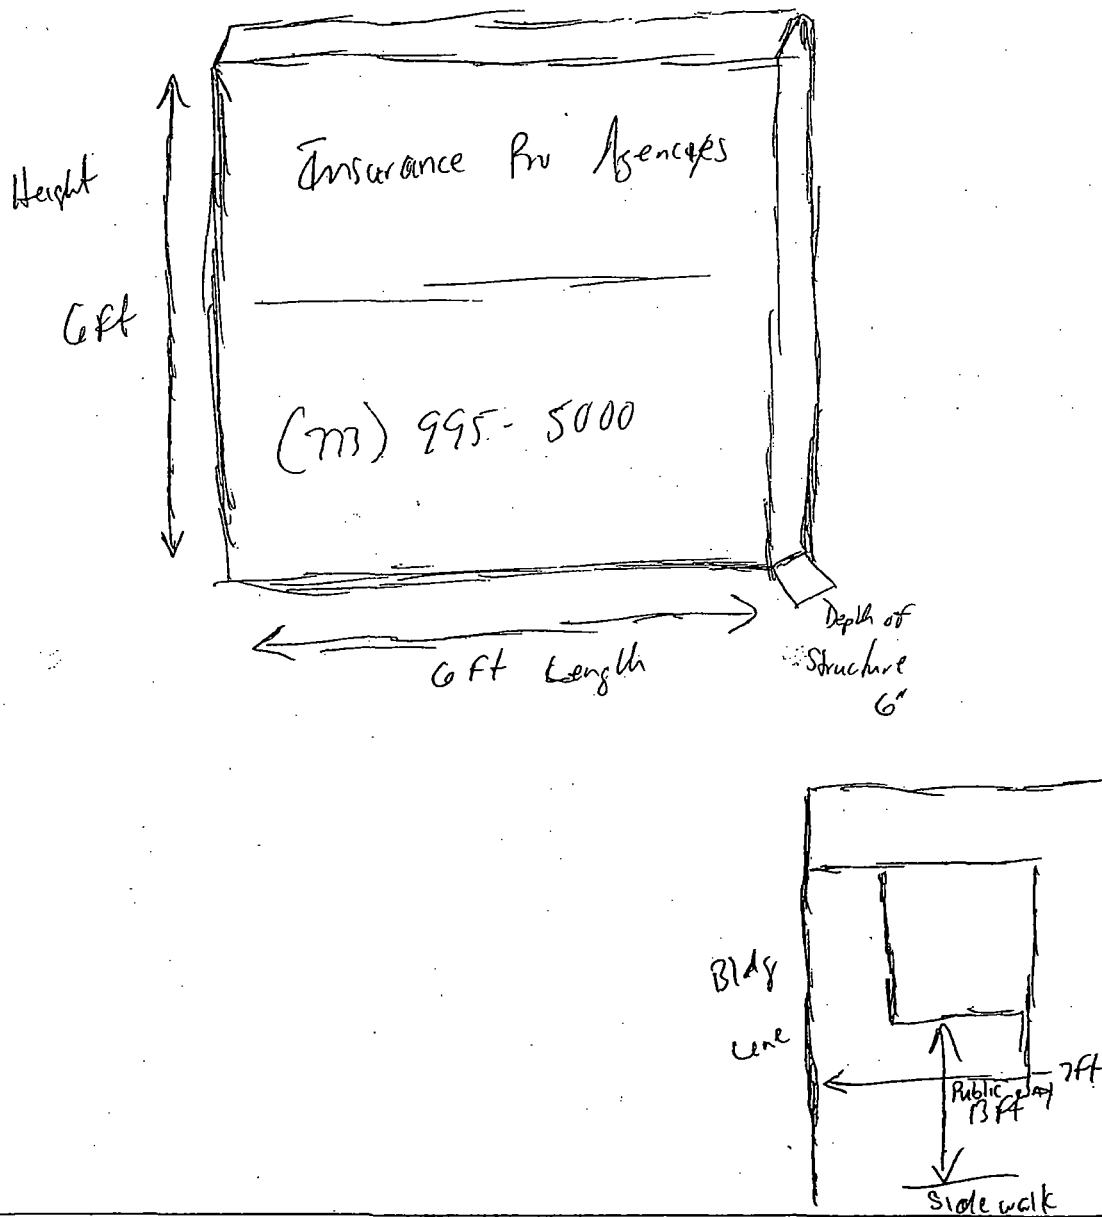 Height
6 Ft
Insurance Pro Agencies
(773) 995-5000
6 Ft Length
Depth of
Structure
6"
Bldg
Line
7Ft
Public way
13 Ft
Sidewalk